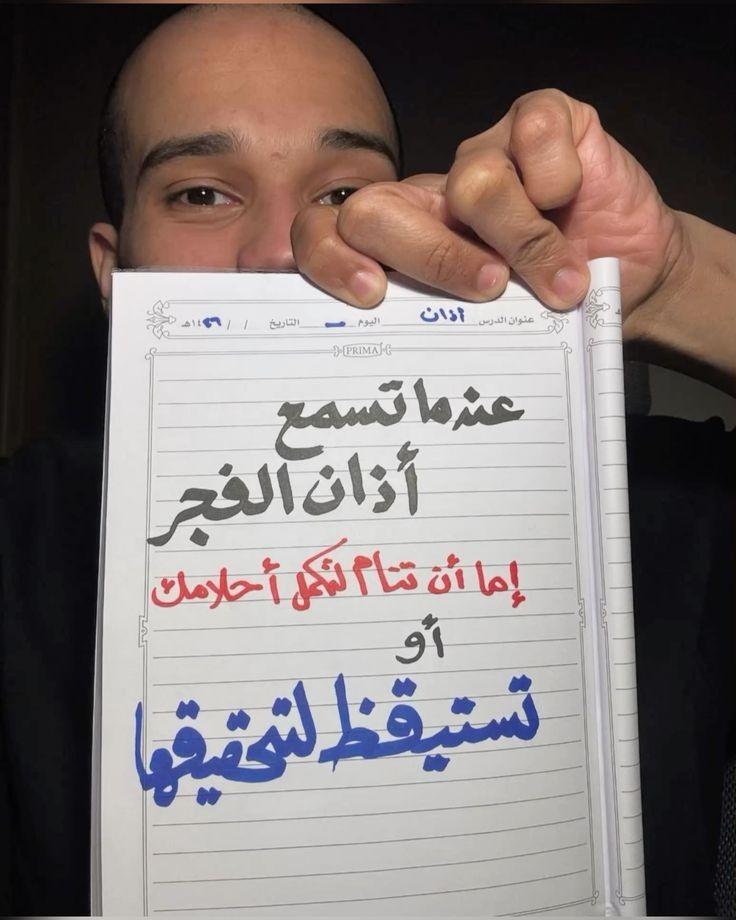 عنوان الدرس أذان اليوم ـ التاريخ / / ١٤٤٦هـ
PRIMA
عندما تسمع
أذان الفجر
إما أن تنام لتكمل أحلامك
أو
تستيقظ لتحقيقها